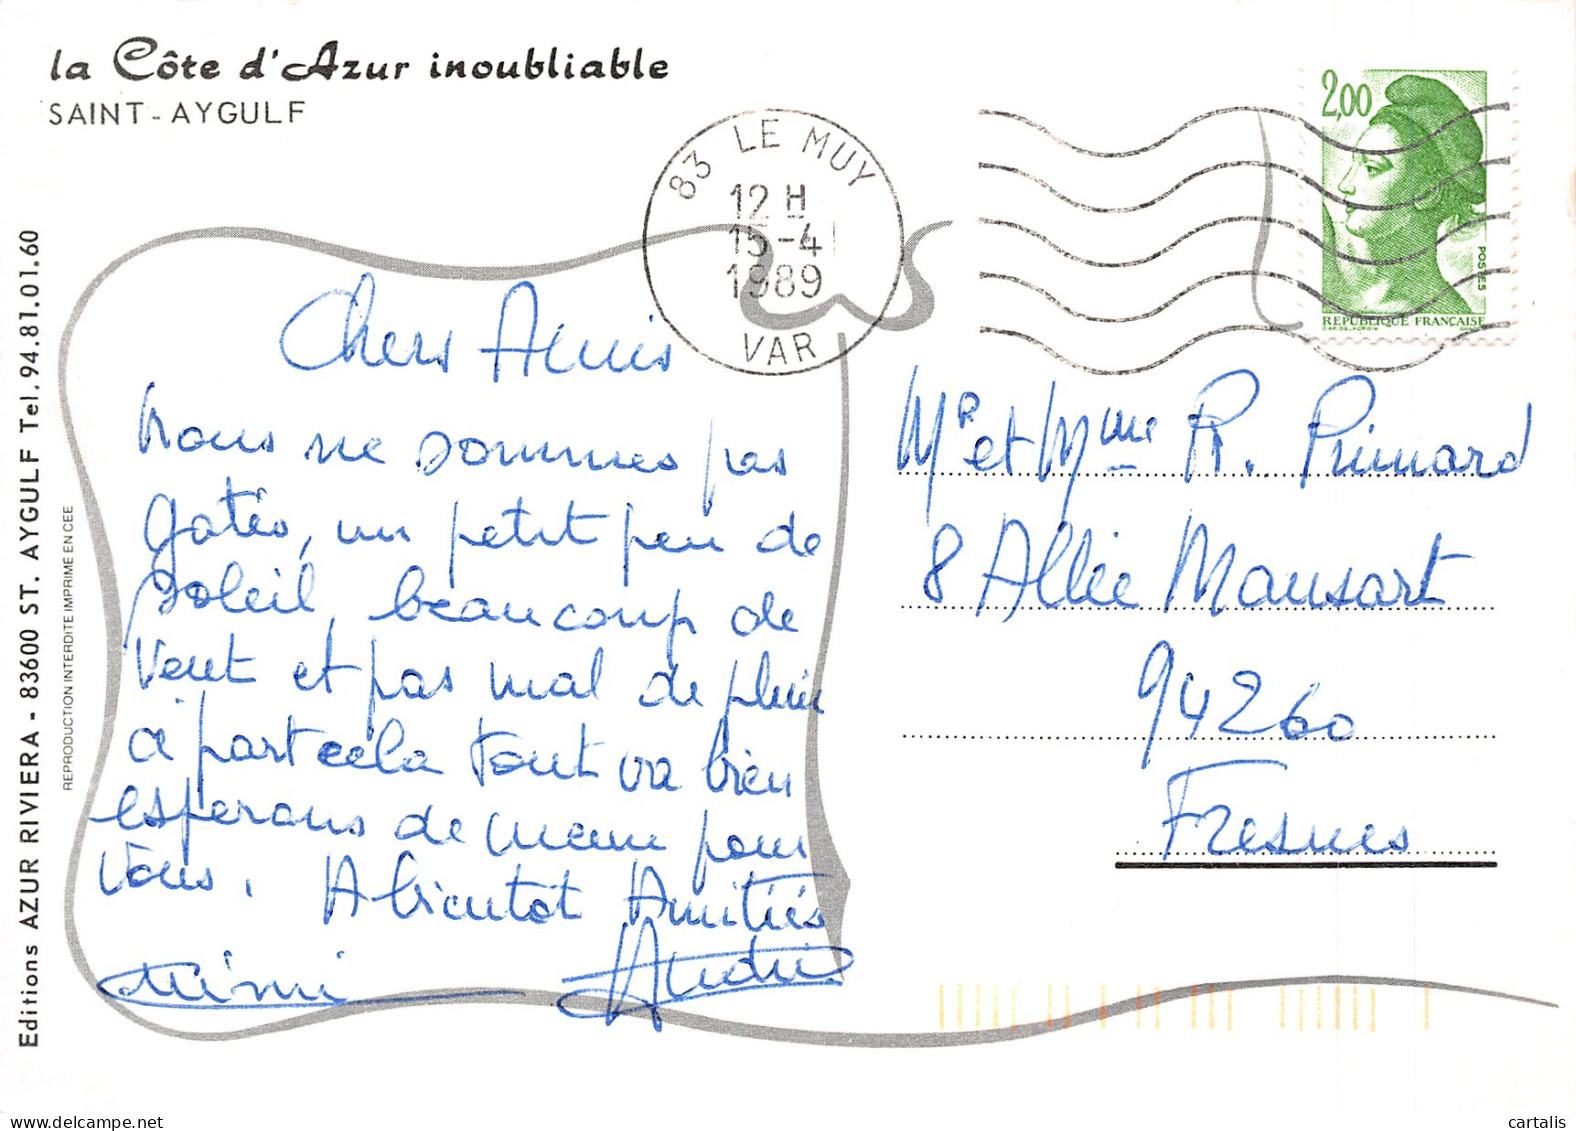 la Côte d'Azur inoubliable
SAINT-AYGULF
83 LE MUY
12 H
15-4
1989
VAR
2,00
POSTES
REPUBLIQUE FRANÇAISE
Editions AZUR RIVIERA - 83600 ST. AYGULF Tel. 94.81.01.60
REPRODUCTION INTERDITE IMPRIME EN CEE
Chers Amis
Nous ne sommes pas
gatés, un petit peu de
soleil, beaucoup de
vent et pas mal de pluie
à part cela tout va bien
esperons de meme pour
vous. A bientot Amitiés
Mimi André
Mr et Mme R. Primard
8 Allée Mansart
94260
Fresnes
cartalis